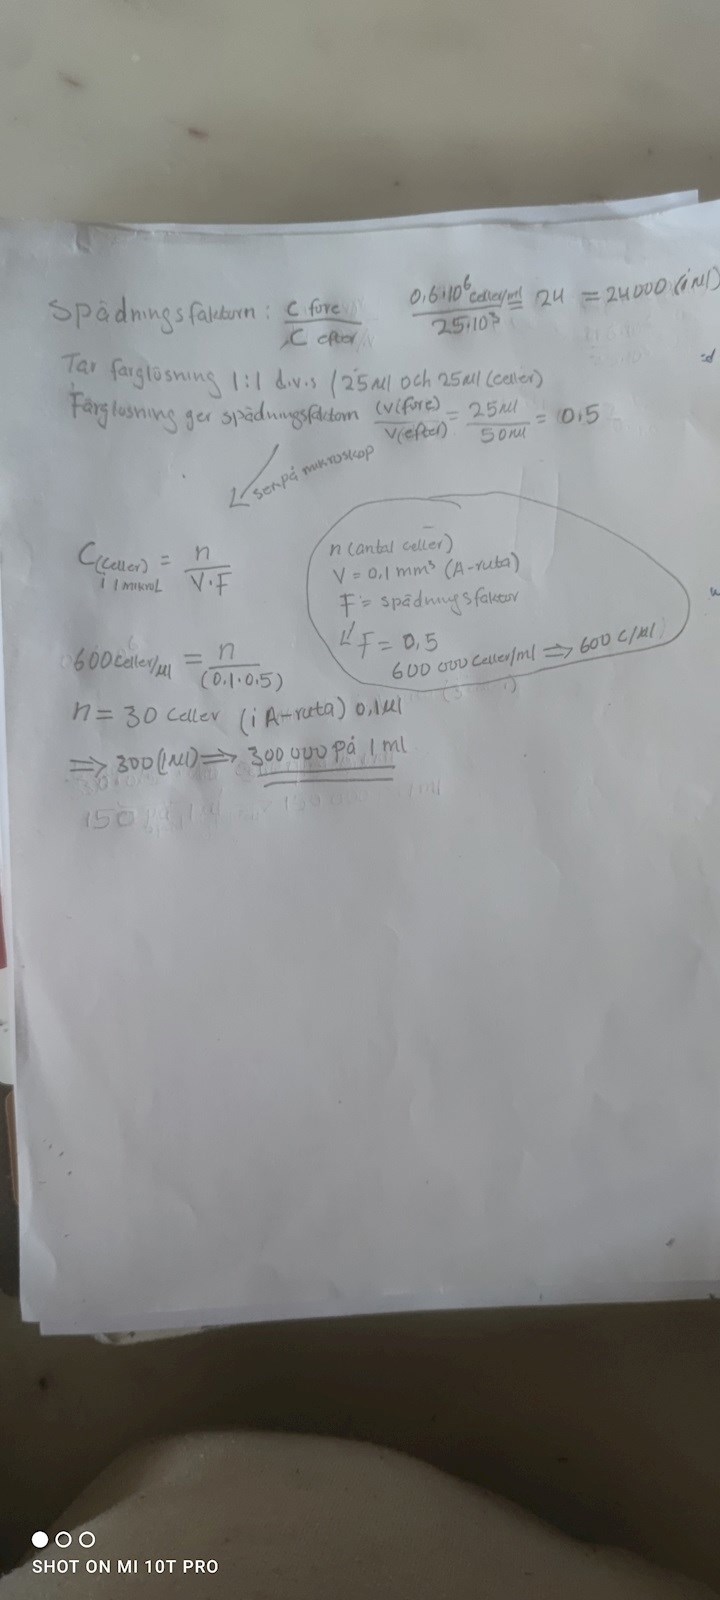 Spädningsfaktorn: C före / C efter 0,6·10⁶ celler/ml / 25·10³ = 24 = 24000 (i Ml)
Tar färglösning 1:1 d.v.s (25 Ml och 25 Ml (celler)
Färglösning ger spädningsfaktorn (V(före) / V(efter) = 25 Ml / 50 Ml = 0,5
sen på mikroskop
C(celler) i 1 mikroL = n / V·F
n (antal celler)
V = 0,1 mm³ (A-ruta)
F = spädningsfaktor
F = 0,5
600 000 celler/ml ⇒ 600 C/Ml
600 celler/Ml = n / (0,1·0,5)
n = 30 celler (i A-ruta) 0,1 Ml
⇒ 300 (1 Ml) ⇒ 300 000 på 1 ml
150
SHOT ON MI 10T PRO